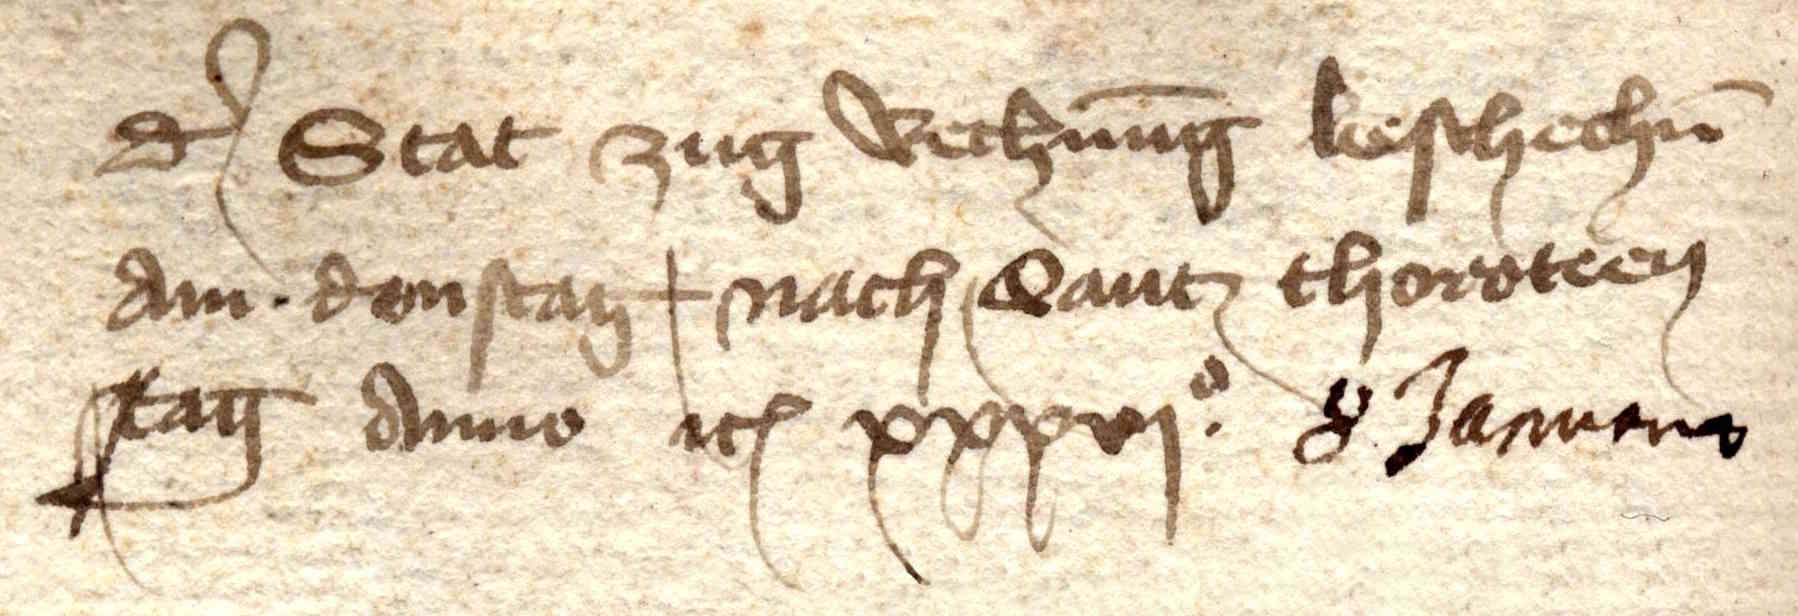 d' Stat zug Rechnu̅ng beschechn̅
Am · donstag nach Sant thoroteen
tag Anno ꝛc xxxvi° . 8. Januarii